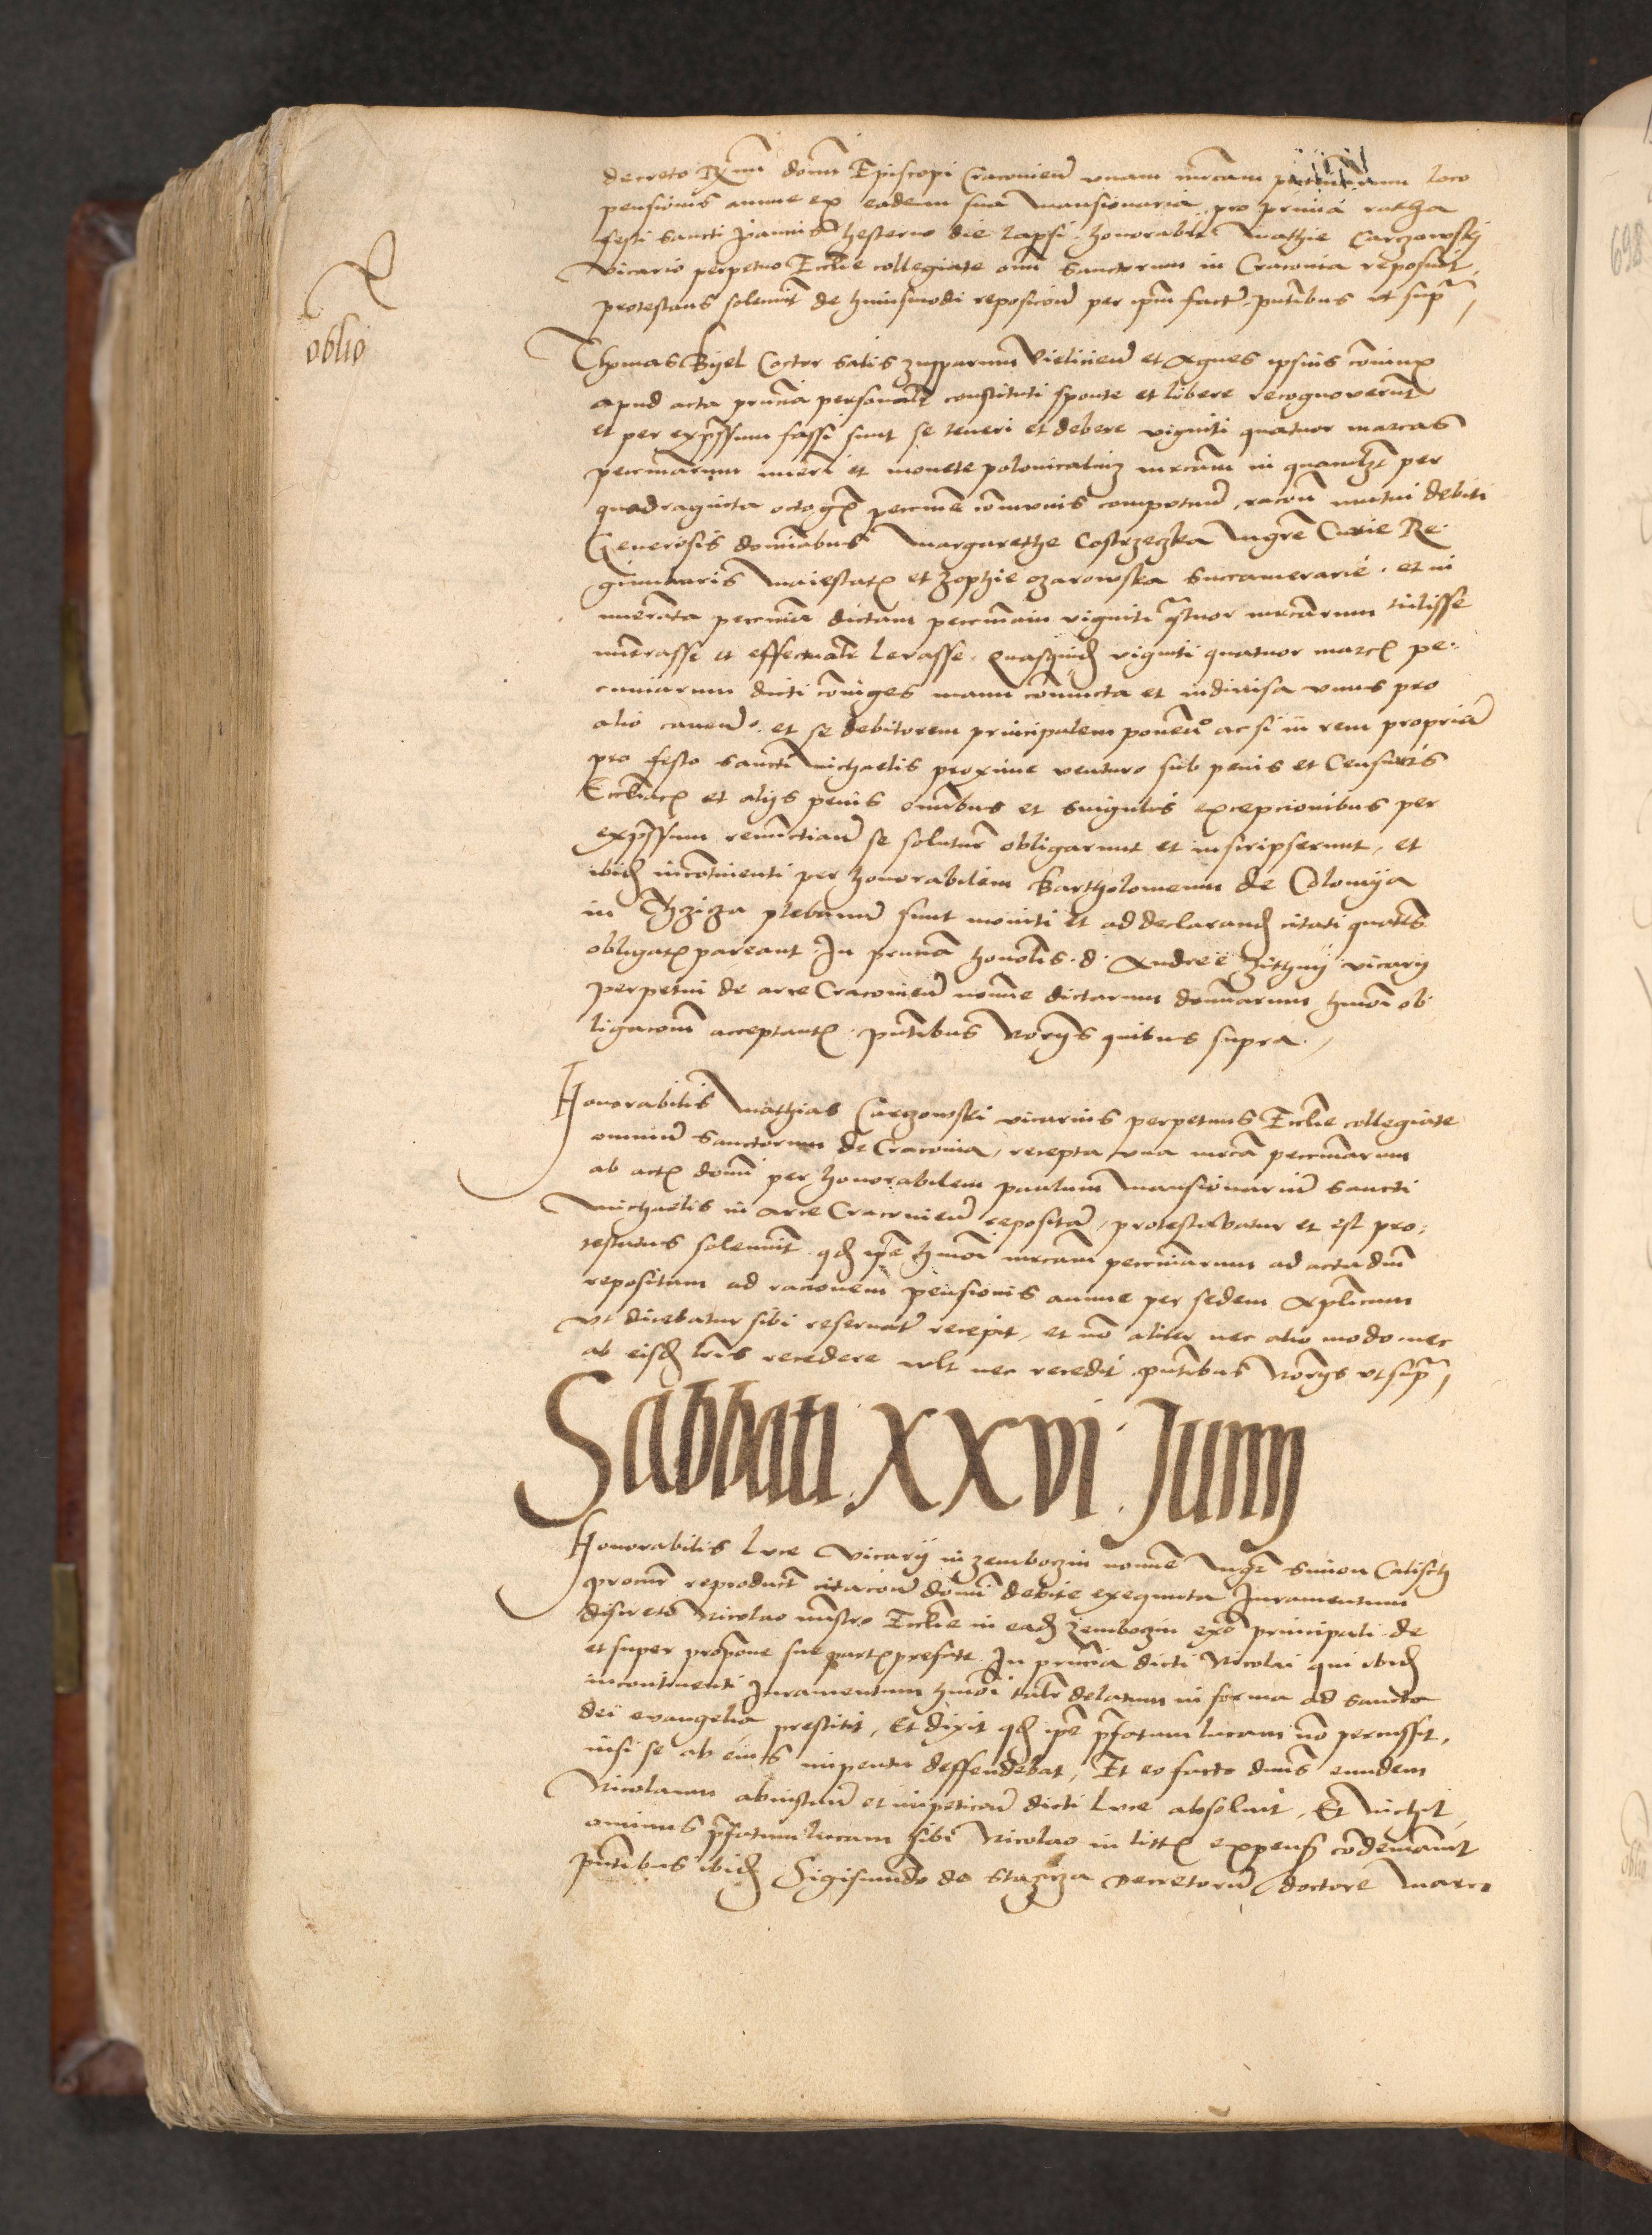 decreto Rmi domi Episcopi Cracovien unam mrcam loco
pensionis annue ex eadem sua mansionaria pro prima ratha
festi sancti Joannis hesterno die lapsi honorabili Mathie Carczowskj
vicario perpetuo Ecclie collegiate omi sanctorum in Cracovia reposuit,
protestans solemnit de huiusmodi reposicione per ipm facta pntibus ut supra
R
oblio
Thomas Kyel Coctor salis zupparum Vielicien et Agnes ipsius coniunx
apud acta prncia personalr constituti sponte et libere recognoverunt
et per expssum fassi sunt se teneri et debere viginti quatuor marcas
pecuniarum numeri et monete polonicalis mrcam in quamlibet per
quadraginta octo gr pecunie communis computan, racone mutui debiti
Generosis dominabus Margarethe Costrzeczka Mgre Curie Re-
ginularis Maiestatis et Zophie ozarowska succamerarie. et in
numerata pecunia dictam pecuniam viginti quatuor mrcarum tulisse
numerasse et effectualr levasse. Quasquid viginti quatuor marcas pe-
cuniarum dicti coniuges manu coniuncta et indivisa unus pro
alio cavendo. et se debitorem principalem ponendo ac si in rem propriam
pro festo sancti Michaelis proxime venturo sub penis et Censuris
Ecclesiasticis et alijs penis omnibus et singulis excepcionibus per
expssum renunctian se soluturos obligarunt et inscripserunt, et
ibidem incontinenti per honorabilem Bartholomeum de Colomya
in plebanum sunt moniti et ad declarand citati quatenus
obligatis pareant. In prncia honolis. d. Andree vicarij
perpetui de arce Cracovien nomine dictarum dominarum hmoi ob-
ligacionem acceptantis. pntibus Norijs quibus supra.
Honorabilis Mathias Carczowski vicarius perpetuus Ecclie collegiate
omnium sanctorum de Cracovia, recepta una mrca pecuniarum
ab actis domi per honorabilem paulum Mansionarium sancti
Michaelis in Arce Cracovien reposita, protestabatur et est pro-
testatus solemnit qd ipse hmoi mrcam pecuniarum ad acta domi
repositam ad racionem pensionis annue per sedem Aplicam
Ut dicebatur sibi reservate recepit, et no aliter nec alio modo nec
ab eisd lris recedere vult nec recedit. pntibus Norijs ut supra
Sabbati. XXVI. Junij
Honorabilis Luce vicarij in Zemboczin nomine Mgr Simon Calisch
procur reproduct citacione domi debite exequuta Juramentum
discreto Nicolao ministro Ecclie in ead Zemboczin exo principali de
et super propone sue partis prefate. In prncia dicti Nicolai qui ibid
incontinenti Juramentum hmoi talr delatum in forma ad sancta
dei evangelia prestitit, Et dixit qd ipse pfatum lucam no percussit,
nisi se ab eius impetu deffendebat, Et eo facto dnus eundem
Nicolaum ab instan et impeticone dicti Luce absoluit, Et nichil-
ominus pfatum lucam sibi Nicolao in litis expens condemnavit
pntibus ibid Sigismundo de Stazicza decretorum doctore Marco